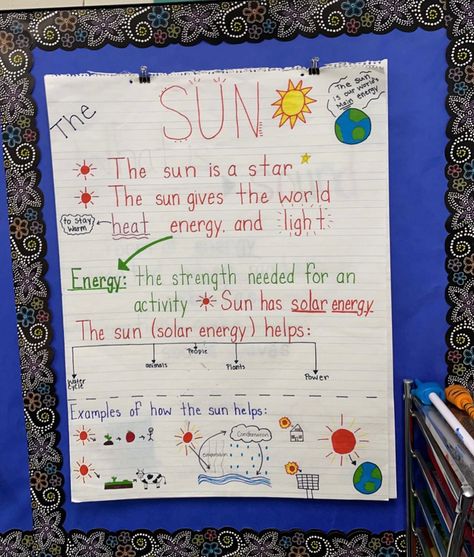 The SUN
The sun
is our world's
Main energy
The sun is a star
The sun gives the world
to stay
warm
heat energy. and light
Energy: the strength needed for an
activity Sun has solar energy.
The sun (solar energy) helps:
Water
Cycle
animals
People
Plants
Power
Examples of how the sun helps:
Condensation